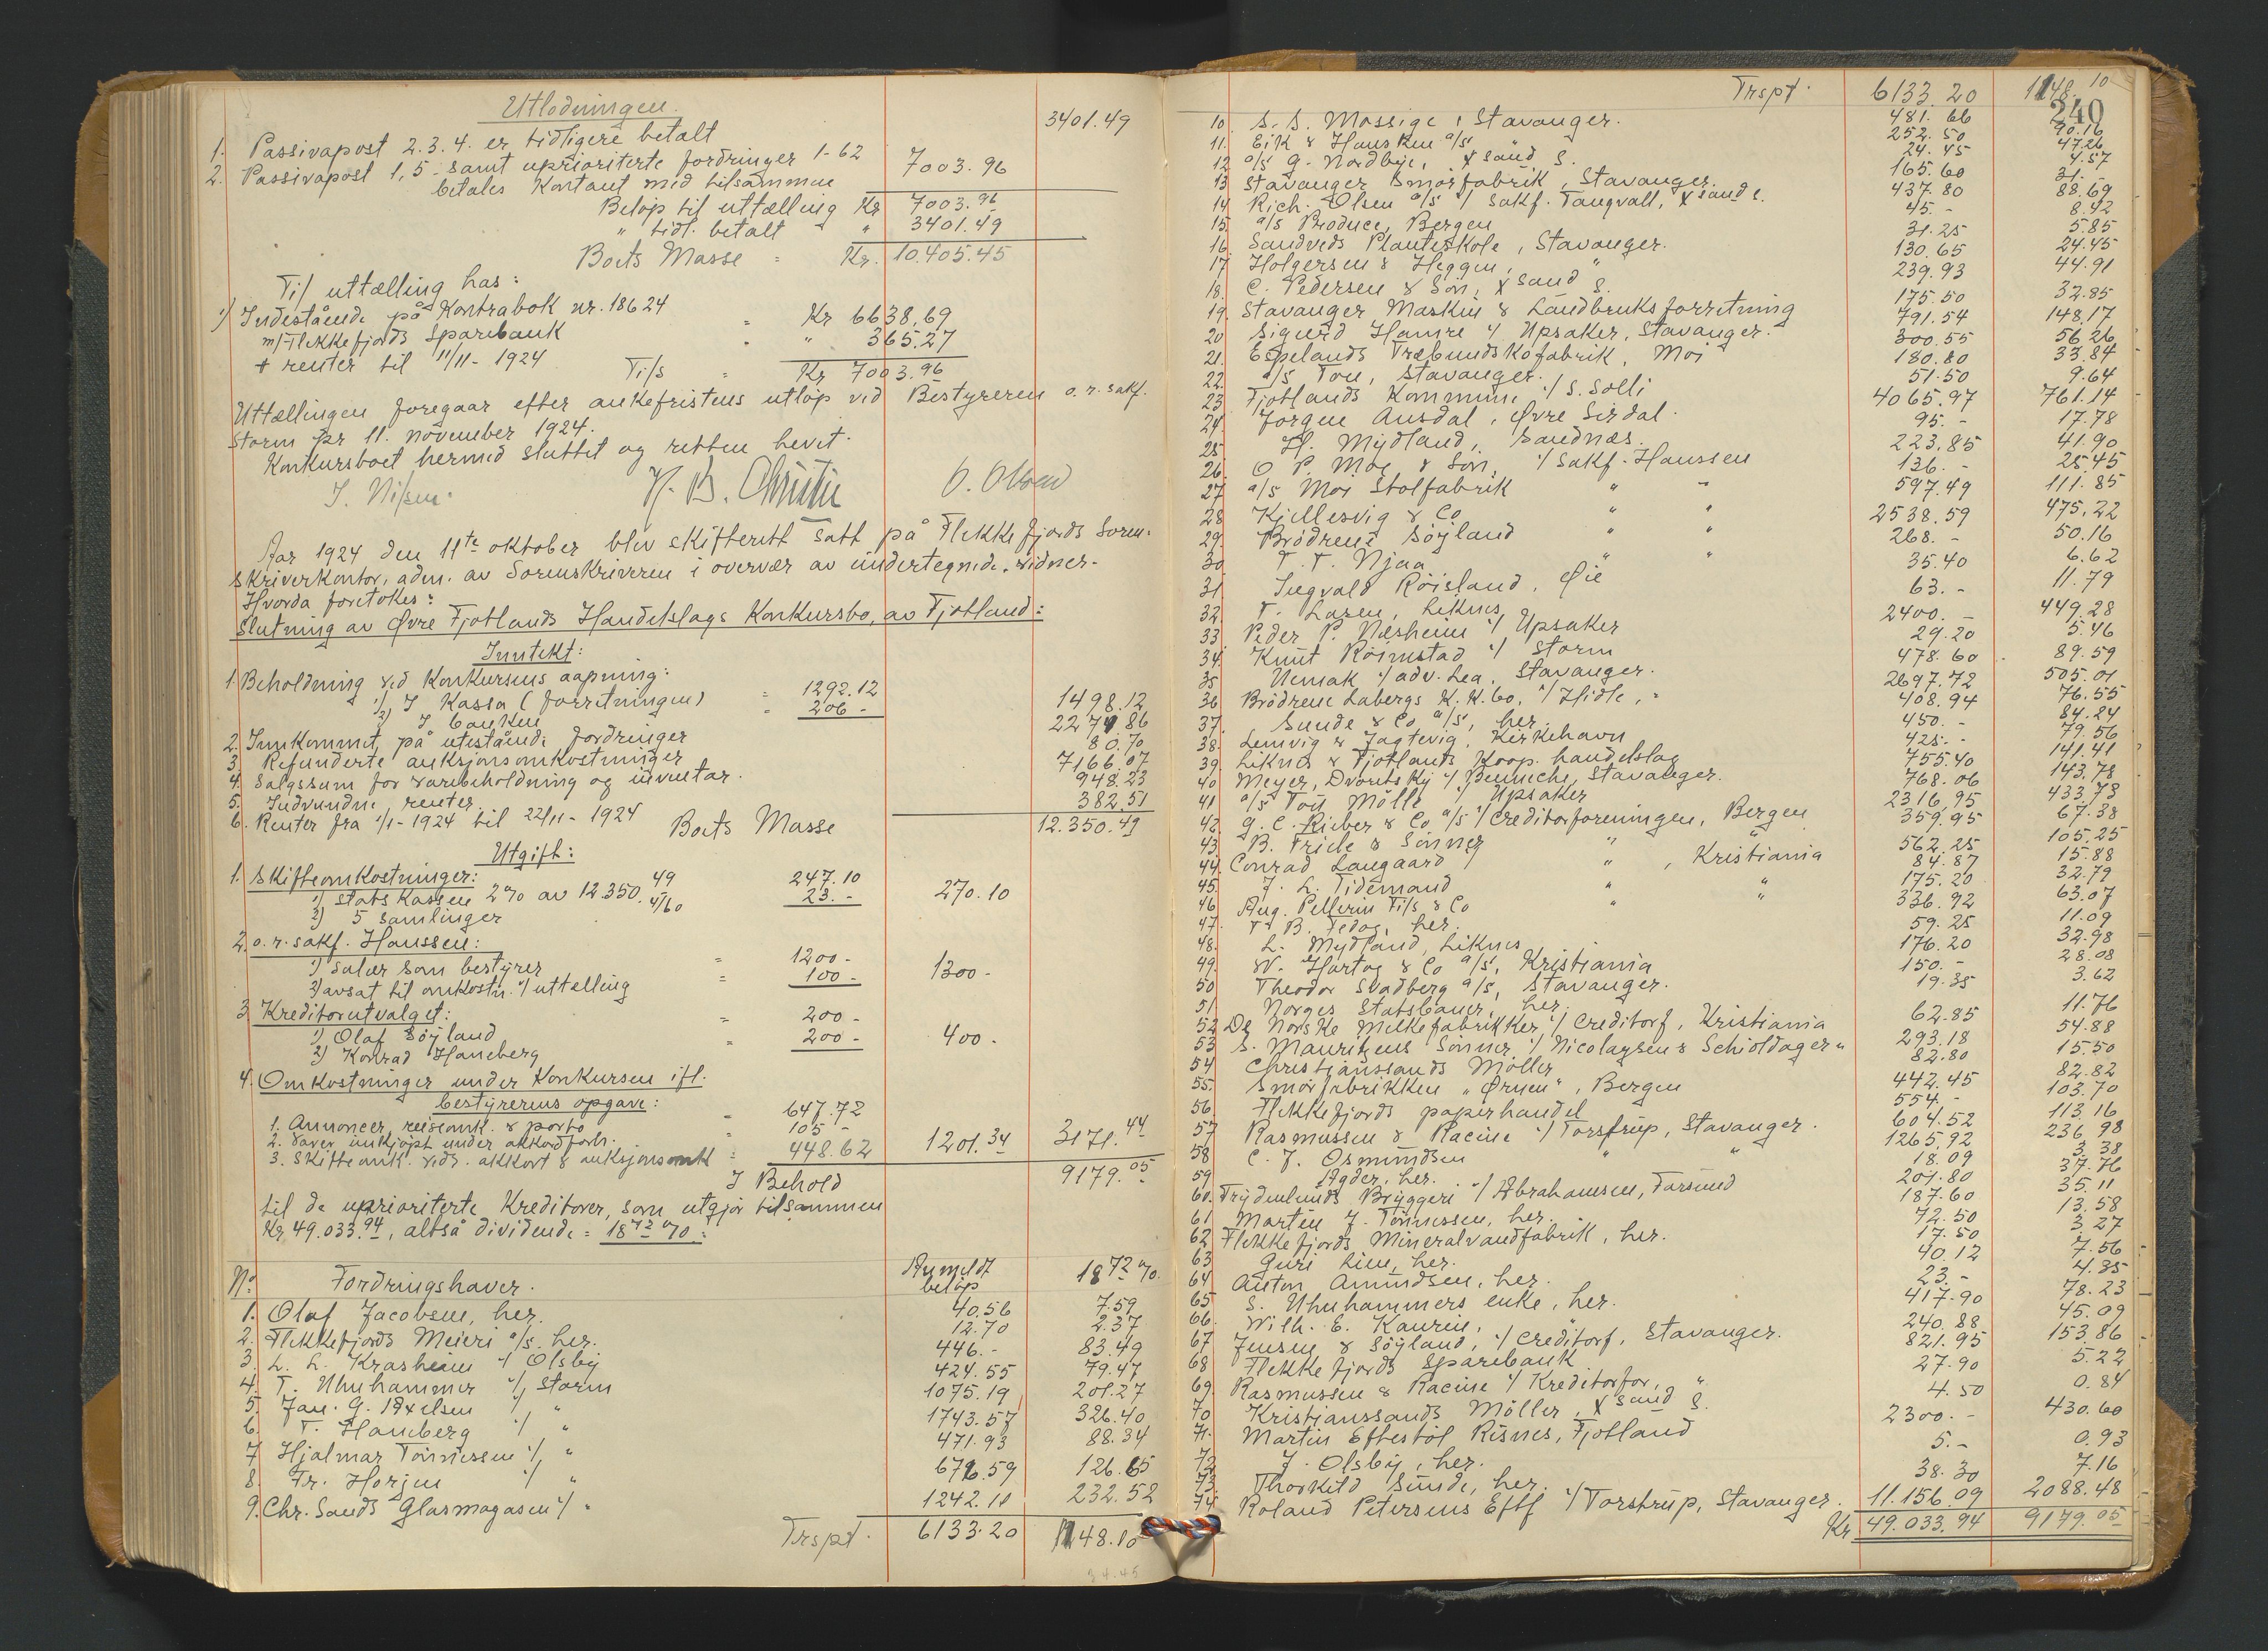 Utlodningen.
1. Passivapost 2. 3. 4. er tidligere betalt 3401.49
2. Passivapost 1, 5 samt uprioriterte fordringer 1-62
betales kontant med tilsammen 7003.96
Beløp til uttælling Kr 7003.96
" tidl. betalt " 3401.49
Boets Masse = Kr. 10.405.45
Til uttælling has:
1) Indestående på Kontrabok nr. 18624
m/Flekkefjords Sparebank = Kr 6638.69
+ renter til 11/11 - 1924 " 365.27
Ti/s = Kr 7003.96
Uttællingen foregaar efter ankefristens utløp ved Bestyreren o.r.sakf.
Storm pr 11. november 1924.
Konkursboet hermed sluttet og retten hevet.
J. Nilsen. O. Olsen
Aar 1924 den 11te oktober blev skifterett satt på Flekkefjords Soren-
skriverkontor, adm. av Sorenskriveren i overvær av undertegnede vidner.
Hvorda foretokes:
Slutning av Øvre Fjotlands Handelslags Konkursbo, av Fjotland:
Inntekt:
1 Beholdning ved Konkursens aapning:
1) I Kassa (forretningen) = 1292.12
2) I banken = 206 - 1498.12
2. Innkommet på utestående fordringer 2274.86
3. Refunderte auksjonsomkostninger 80.70
4. Salgssum for varebeholdning og inventar. 7166.07
5. Indvundne renter. 948.23
6. Renter fra 1/1 - 1924 til 22/11 - 1924 382.51
Boets Masse 12.350.49
Utgift:
1. Skifteomkostninger:
1) Statskassen 2% av 12.350.49 247.10
2) 5 samlinger 4/60 23.- 270.10
2. o.r.sakf. Hanssen:
1) Salær som bestyrer = 1200 -
2) avsat til omkostn. v/ uttelling = 100 - 1300 -
3. Kreditorutvalget:
1) Olaf Söyland = 200 -
2) Konrad Haneberg = 200 - 400 -
4. Omkostninger under Konkursen ifl.
bestyrerens opgave:
1. Annoncer, reiseomk. & porto = 647.72
2. Varer innkjøpt under akkordforh. = 105 -
3. Skifteomk. vedr. akkort & auksjonsomk = 448.62 1201.34 3171.44
I Behold 9179.05
til de uprioriterte Kreditorer, som utgjør tilsammen
Kr 49.033.94, altså dividende = 18 72 %:
No Fordringshaver. Anmeldt beløp 18 72 %.
1. Olaf Jacobsen, her. 40.56 7.59
2. Flekkefjords Meieri a/s. her. 12.70 2.37
3. L. L. Krasheim v/ Olsby 446.- 83.49
4. T. Uhuhammer v/ Storm 424.55 79.47
5. Jan. G. Axelsen v/ " 1075.19 201.27
6. T. Haneberg v/ " 1743.57 326.40
7 Hjalmar Tønnessen v/ " 471.93 88.34
8. Fr. Horjen v/ " 676.59 126.65
9. Chr. Sands Glasmagasen v/ " 1242.11 232.52
Trspt. 6133.20 1148.10
34.45
Trspt. 6133.20 1148.10
240
10. S. S. Mossige, Stavanger. 481.66 90.16
11. Eik & Hausken a/s " 252.50 47.26
12 a/s G. Nordbye, X sand S. 24.45 4.57
13 Stavanger Smørfabrik, Stavanger. 165.60 31.-
14. Rich. Olsen a/s v/ sakf. Tangvall, X sand S. 437.80 88.69
15. a/s Produce, Bergen 45.- 8.42
16. Sandveds Planteskole, Stavanger. 31.25 5.85
17 Holgersen & Heggen, " 130.65 24.45
18. C. Pedersen & Søn, X sand S. 239.93 44.91
19. Stavanger Maskin & Landbruksforretning 175.50 32.85
20 Sigurd Hamre v/ Upsaker, Stavanger. 791.54 148.17
21. Espelands Træbundskofabrik, Moi 300.55 56.26
22. a/s Tou, Stavanger. 180.80 33.84
23 Fjotlands Kommune v/ S. Solli 51.50 9.64
24. Jørgen Ausdal, Øvre Sirdal. 4065.97 761.14
25. H. Mydland, Sandnæs. 95.- 17.78
26. O. P. Moe & Søn, v/ sakf. Hanssen 223.85 41.90
27. a/s Moi Stolfabrik " " 136.- 25.45
28 Kjellesvig & Co " " 597.49 111.85
29. Brødrene Söyland " " 2538.59 475.22
30 T. T. Njaa " " 268.- 50.16
31 Ingvald Röisland, Øie 35.40 6.62
32. T. Lasen, Liknes 63.- 11.79
33 Peder P. Næsheim v/ Upsaker 2400.- 449.28
34. Knut Röinestad v/ Storm 29.20 5.46
35 Nemak v/ adv. Lea, Stavanger. 478.60 89.59
36 Brödrene Labergs K. K. Co. v/ Hidle, " 2697.72 505.01
37. Sunde & Co a/s, her. 408.94 76.55
38. Lemvig & Jagtevig, Kirkehavn 450.- 84.24
39. Liknes & Fjotlands Koop. handelslag 425.- 79.56
40 Meyer, Dvoretsky v/ Penneche, Stavanger. 755.40 141.41
41 a/s Tou Mölle v/ Upsaker 768.06 143.78
42. G. C. Rieber & Co a/s v/ Creditorforeningen, Bergen 2316.95 433.73
43. B. Friele & Sønner " " 359.95 67.38
44. Conrad Langaard " , Kristiania 562.25 105.25
45. J. L. Tidemand " " 84.87 15.88
46 Aug. Pellerin Fi/s & Co " " 175.20 32.79
47. Fr. B. Fedog, her. 336.92 63.07
48. L. Mydland, Liknes 59.25 11.09
49. W. Hartog & Co a/s, Kristiania 176.20 32.98
50 Theodor Svadberg a/s, Stavanger. 150.- 28.08
51. Norges Statsbaner, her. 19.35 3.62
52 De Norske Melkefabrikker, v/ Creditorf, Kristiania 62.85 11.76
53 S. Mauritzens Sønner v/ Nicolaysen & Schioldager " 293.18 54.88
54 Christianssands Møller 82.80 15.50
55. Smørfabrikken "Ørnen", Bergen 442.45 82.82
56. Flekkefjords papirhandel 554.- 103.70
57 Rasmussen & Racine v/ Torstrup, Stavanger. 604.52 113.16
58 C. J. Osmundsen " " 1265.92 236.98
59 Agder, her. 18.09 3.38
60. Frydenlunds Bryggeri v/ Abrahamsen, Farsund 201.80 37.76
61 Martin J. Tønnessen, her. 187.60 35.11
62 Flekkefjords Mineralvandfabrik, her. 72.50 13.58
63 Guri Lien, her. 17.50 3.27
64 Anton Amundsen, her. 40.12 7.56
65 S. Uhuhammers enke, her. 23.- 4.35
66. Wilh. E. Kaurin, " 417.90 78.23
67 Jensen & Söyland, v/ Creditorf, Stavanger. 240.88 45.09
68 Flekkefjords Sparebank 821.95 153.86
69. Rasmussen & Racine v/ Kreditorfor, " 27.90 5.22
70 Kristianssands Möller, X sand S. 4.50 0.84
71. Martin Eftestøl Risnes, Fjotland 2300.- 430.60
72 J. Olsby, her. 5.- 0.93
73. Thorkild Sunde, her. 38.30 7.16
74 Roland Petersens Eftf v/ Torstrup, Stavanger. 11.156.09 2088.48
Kr 49.033.94 9179.05